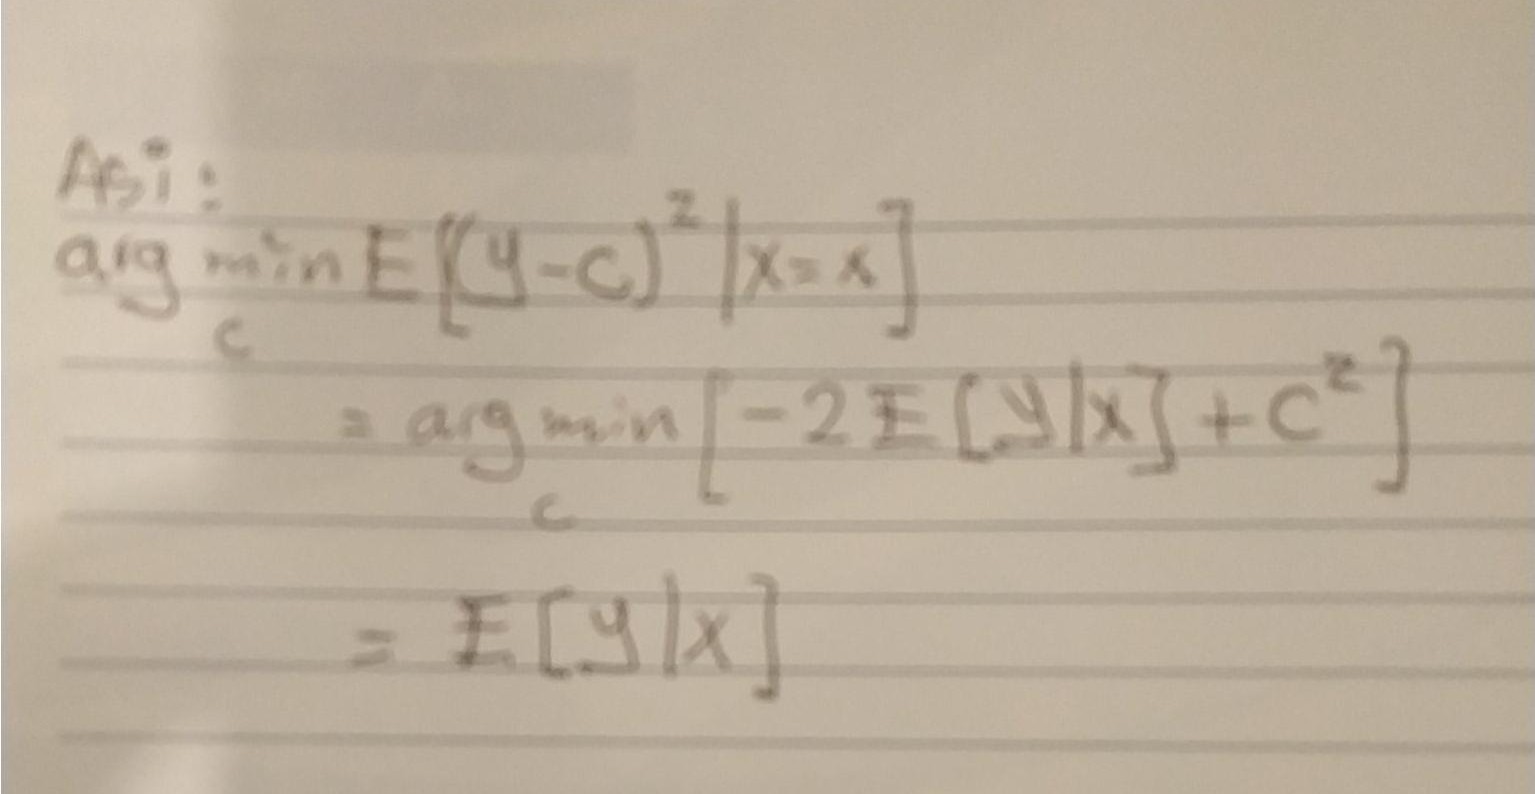 Asi:
arg min E[(y-c)² |x=x]
c
= arg min [-2E[y|x]+c²]
c
= E[y|x]